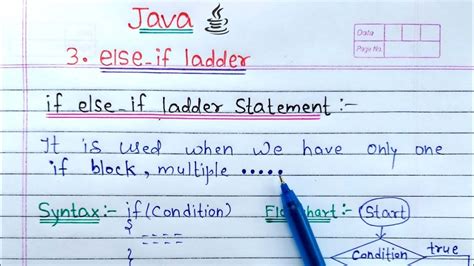 Java
Data
Page No.
3. else-if ladder
if else-if ladder Statement :-
It is used when we have only one
if block, multiple .....
Syntax:- if(Condition) Flowchart:- Start
{
----
----
}
Condition true